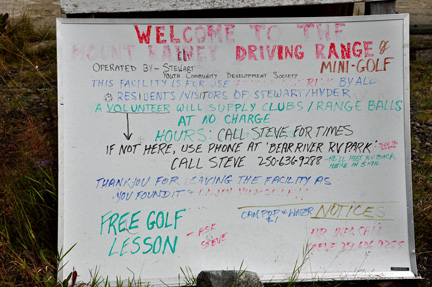 WELCOME TO THE
MOUNT RAINEY DRIVING RANGE &
MINI-GOLF
OPERATED BY - STEWART
YOUTH COMMUNITY DEVELOPMENT SOCIETY
THIS FACILITY IS FOR USE BY ALL
RESIDENTS/VISITORS OF STEWART/HYDER
A VOLUNTEER WILL SUPPLY CLUBS/RANGE BALLS
AT NO CHARGE
HOURS: CALL STEVE FOR TIMES
IF NOT HERE, USE PHONE AT 'BEAR RIVER RV PARK'
CALL STEVE 250-636-9288 -HE'LL MEET YOU BACK
HERE IN 5 MIN.
THANKYOU FOR LEAVING THE FACILITY AS
YOU FOUND IT
FREE GOLF
LESSON - ASK
STEVE
CAN POP & WATER
$1
NOTICES
STEVE 250 636 9288